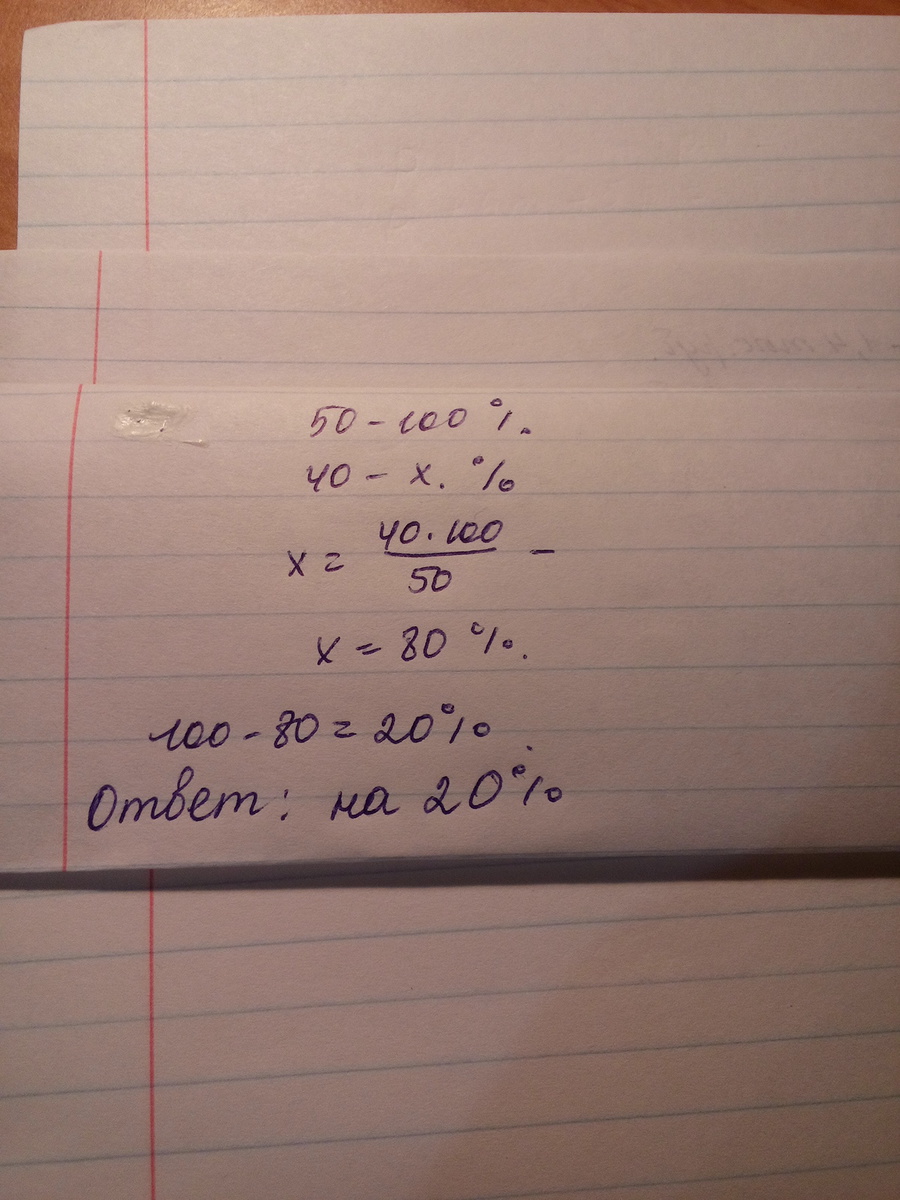 50 - 100 %.
40 - x. %
x = 40 · 100 / 50 -
x = 80 %.
100 - 80 = 20%
Ответ: на 20%